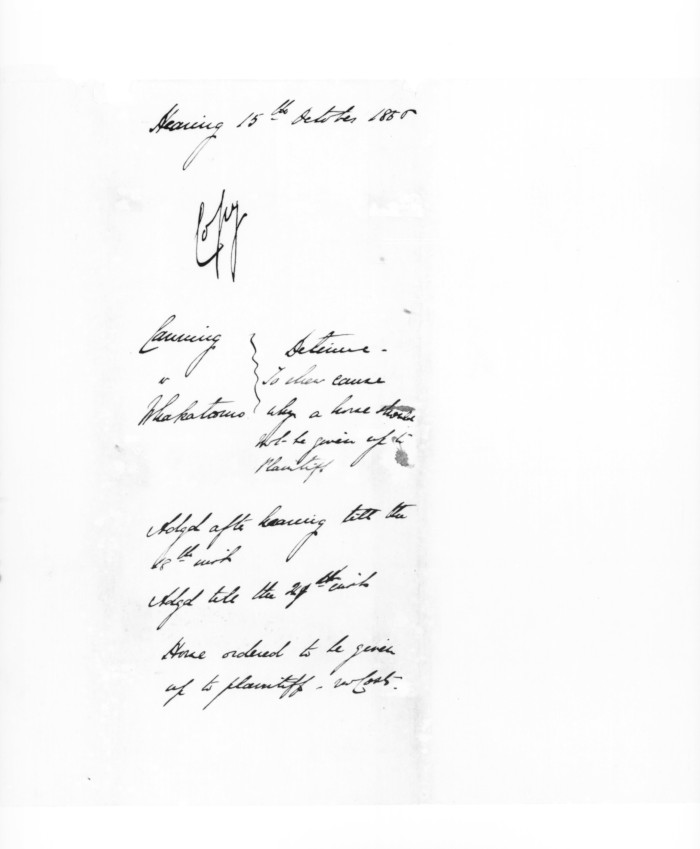 Hearing 15th October 185
Copy
Canning
v
Whakatomo
Detinue -
To shew cause
why a horse should
not be given up to
Plaintiff
Adgd after hearing till the
18th inst
Adgd till the 29th inst
Horse ordered to be given
up to plaintiff - no Costs.